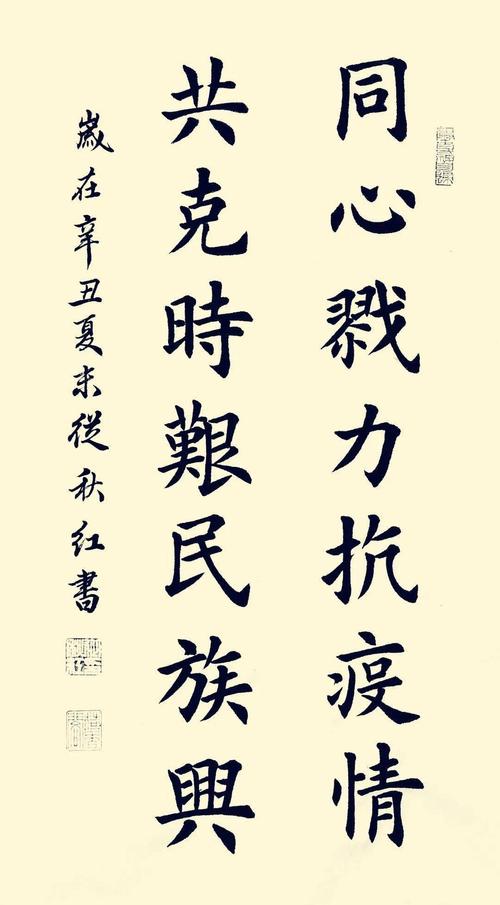 同心戮力抗疫情
共克時艱民族興
歲在辛丑夏末從秋红書